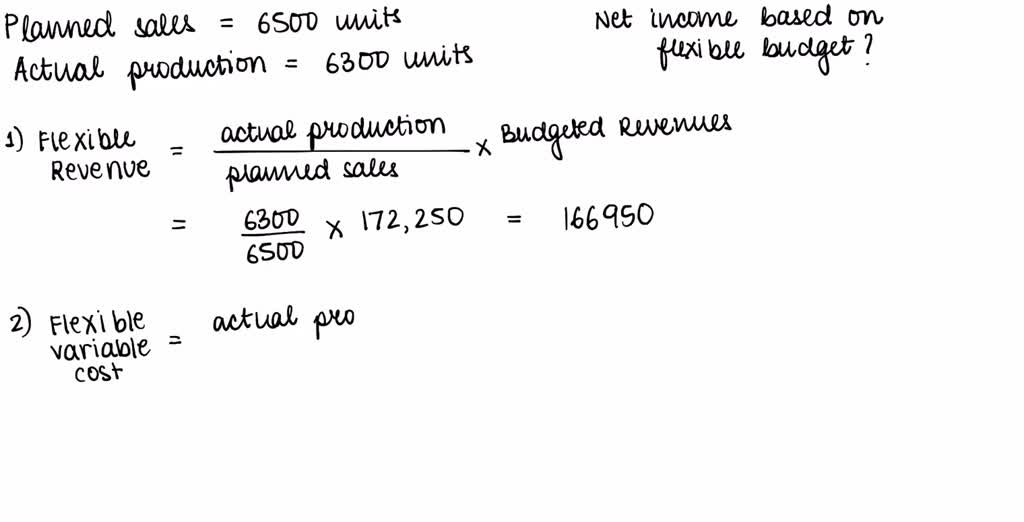 Planned sales = 6500 units
Actual production = 6300 units
Net income based on
flexible budget?
1) Flexible Revenue = actual production / planned sales × Budgeted Revenues
= 6300 / 6500 × 172,250 = 166950
2) Flexible variable cost = actual pro